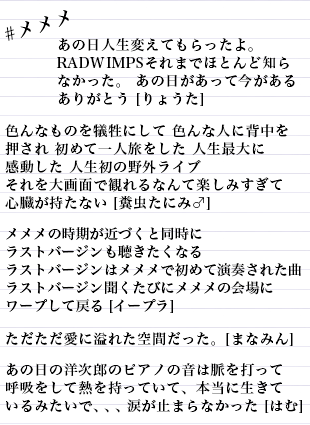 #メメメ
あの日人生変えてもらったよ。
RADWIMPSそれまでほとんど知ら
なかった。 あの日があって今がある
ありがとう [りょうた]
色んなものを犠牲にして 色んな人に背中を
押され 初めて一人旅をした 人生最大に
感動した 人生初の野外ライブ
それを大画面で観れるなんて楽しみすぎて
心臓が持たない [糞虫たにみ♂]
メメメの時期が近づくと同時に
ラストバージンも聴きたくなる
ラストバージンはメメメで初めて演奏された曲
ラストバージン聞くたびにメメメの会場に
ワープして戻る [イーブラ]
ただただ愛に溢れた空間だった。[まなみん]
あの日の洋次郎のピアノの音は脈を打って
呼吸をして熱を持っていて、本当に生きて
いるみたいで、、、涙が止まらなかった [はむ]